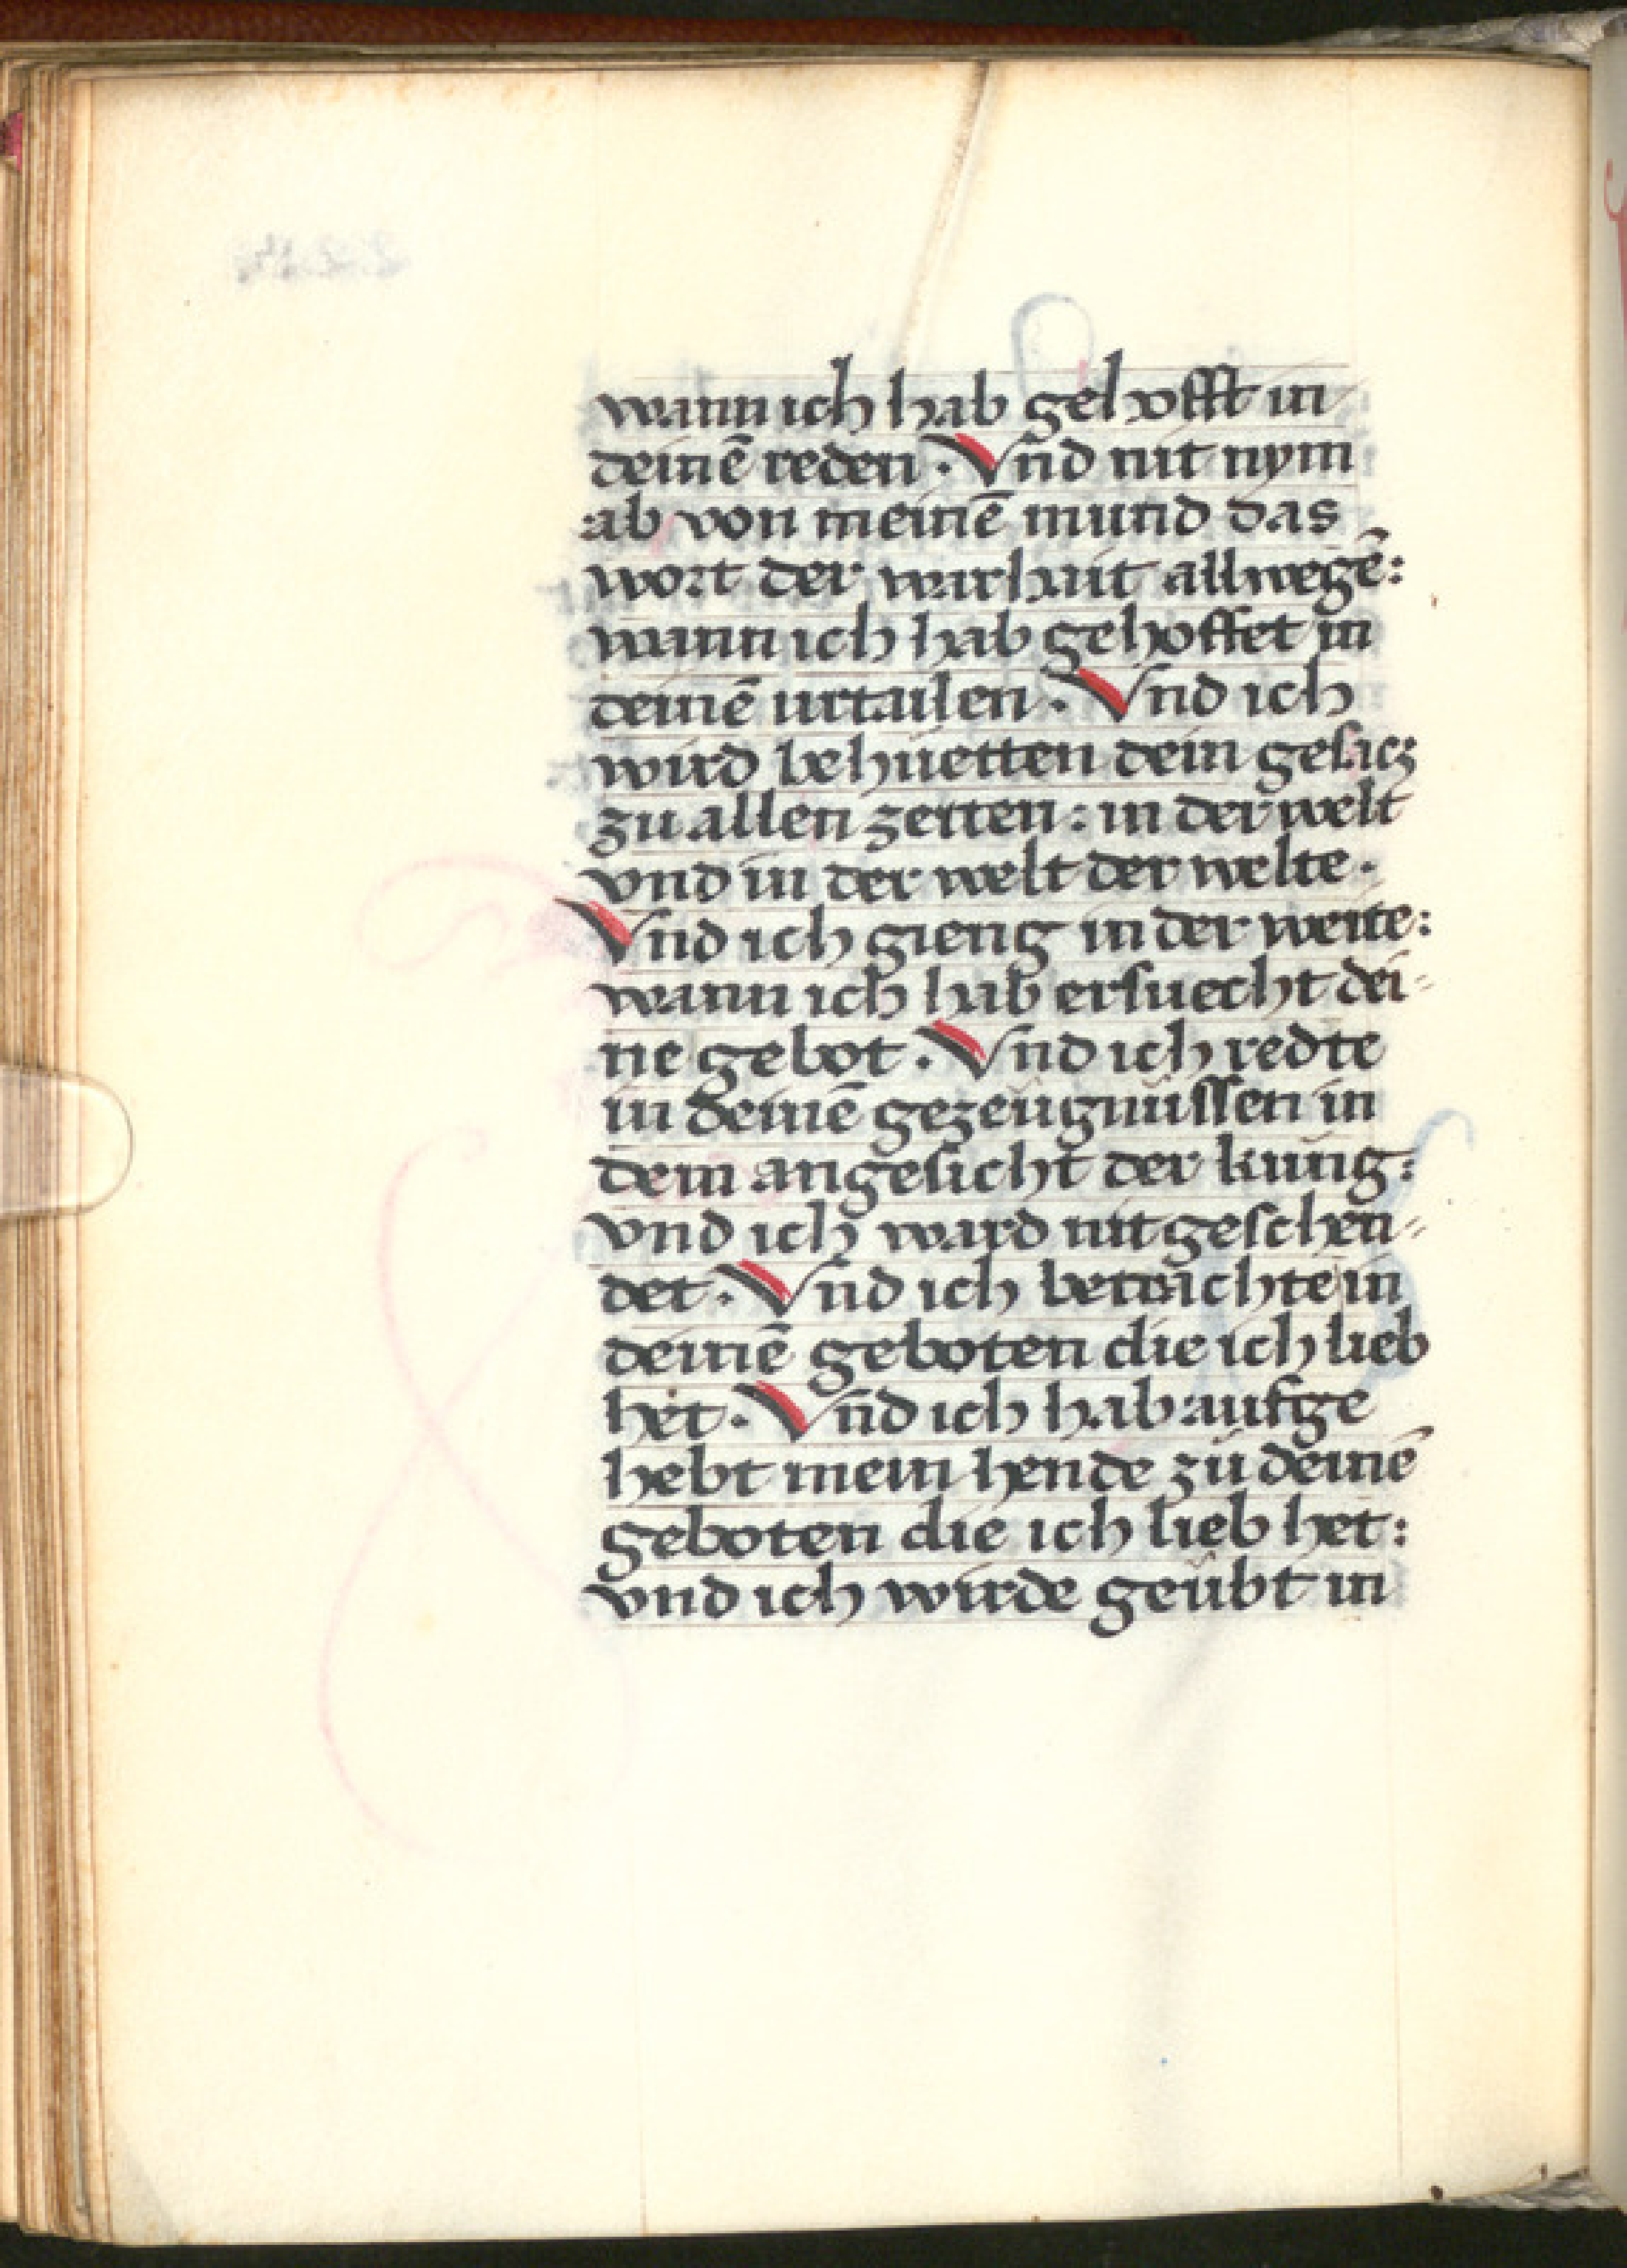 wann ich hab gehofft in
deinē reden · Vnd nit nym
ab von meinē mund das
wort der warhait allwegē:
wann ich hab gehoffet in
deinē urtailen · Vnd ich
wird behüetten dein gesacz
zu allen zeitten: in der welt
vnd in der welt der welte ·
Vnd ich gieng in der weite:
wann ich hab ersuecht dei-
ne gebot · Vnd ich redte
in deinē gezeügnüssen in
dem angesicht der küng:
vnd ich ward nit geschen-
det · Vnd ich betrachte in
deinē geboten die ich lieb
het · Vnd ich hab aufge
hebt mein hende zů deinē
geboten die ich lieb het:
vnd ich wirde geübt in